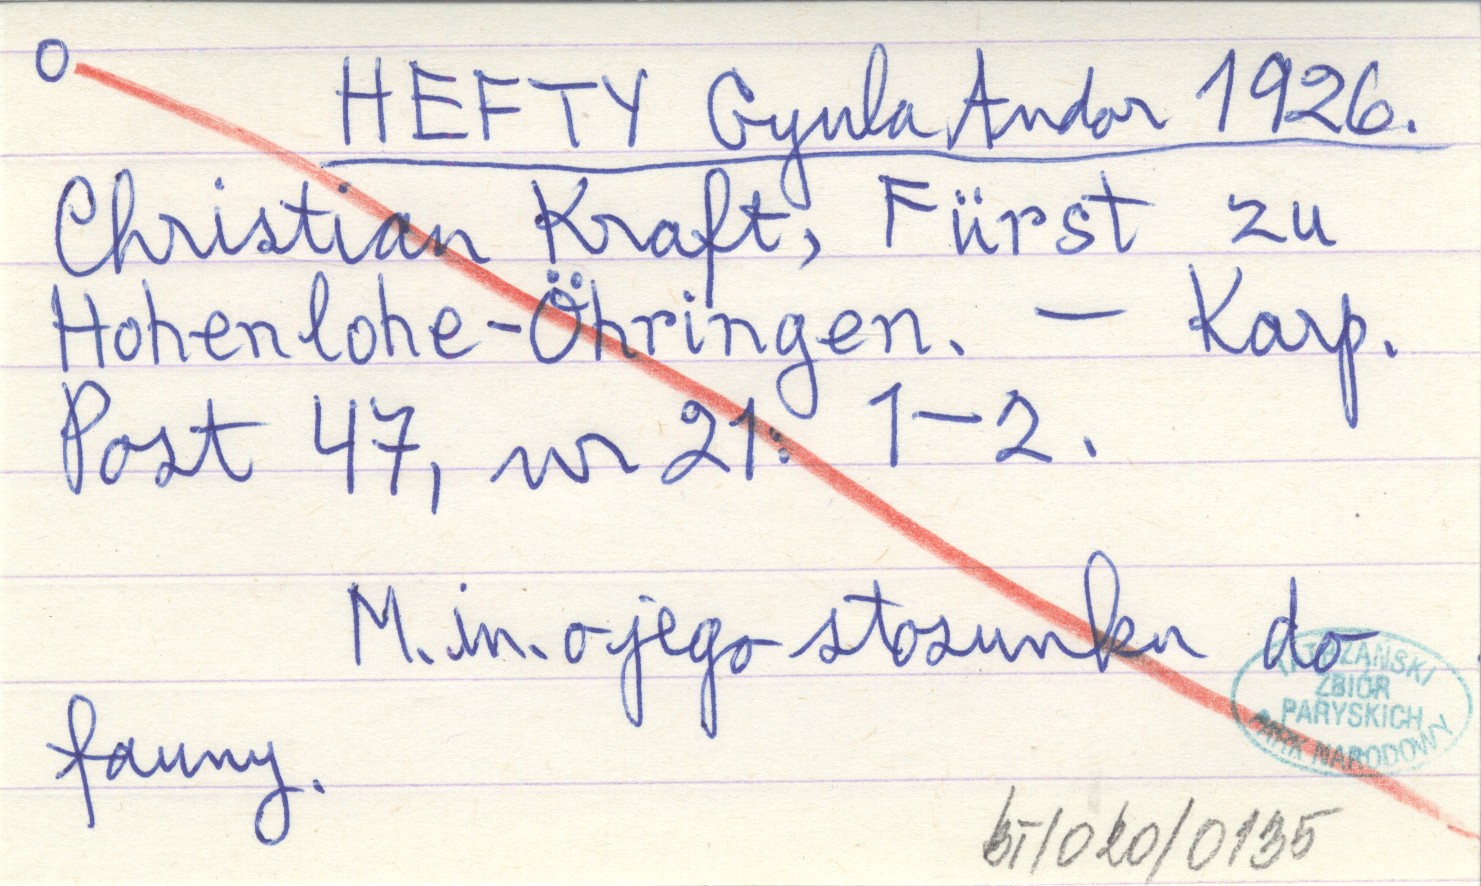 O
HEFTY Gyula Andor 1926.
Christian Kraft, Fürst zu
Hohenlohe-Öhringen. — Karp.
Post 47, nr 21: 1-2.
M. in. o jego stosunku do
fauny.
TATRZAŃSKI
ZBIÓR
PARYSKICH
PARK NARODOWY
bT/020/0135